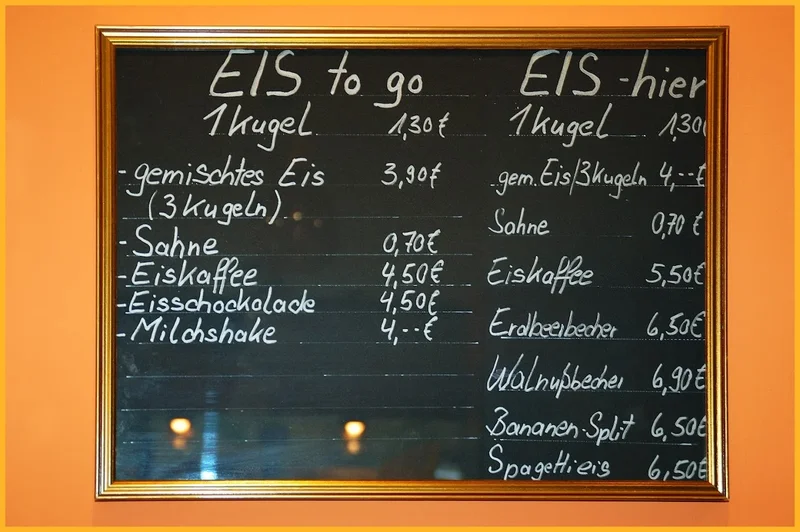 EIS to go
1 Kugel 1,30€
- gemischtes Eis 3,90€
(3 Kugeln)
- Sahne 0,70€
- Eiskaffee 4,50€
- Eisschockolade 4,50€
- Milchshake 4,-- €
EIS - hier
1 Kugel 1,30
gem. Eis/3 Kugeln 4,--€
Sahne 0,70 €
Eiskaffee 5,50€
Erdbeerbecher 6,50€
Walnußbecher 6,90€
Bananen-Split 6,50€
Spagettieis 6,50€